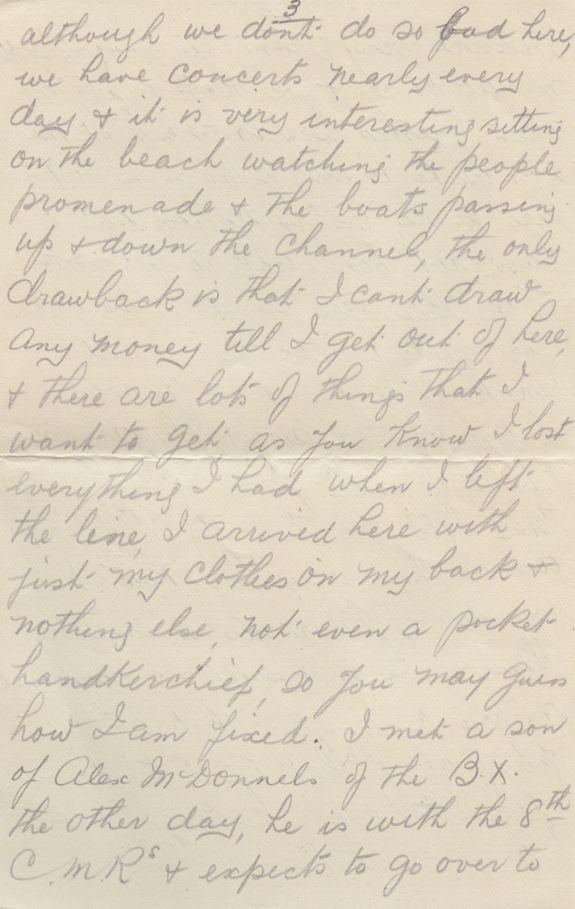 3
although we dont do so bad here,
we have concerts nearly every
day & it is very interesting sitting
on the beach watching the people
promenade & the boats passing
up & down the channel, the only
drawback is that I cant draw
any money till I get out of here,
& there are lots of things that I
want to get as you know I lost
everything I had when I left
the line, I arrived here with
just my clothes on my back &
nothing else, not even a pocket
handkerchief, so you may guess
how I am fixed. I met a son
of Alex McDonnels of the B.X.
the other day, he is with the 8th
C.M.Rs & expects to go over to